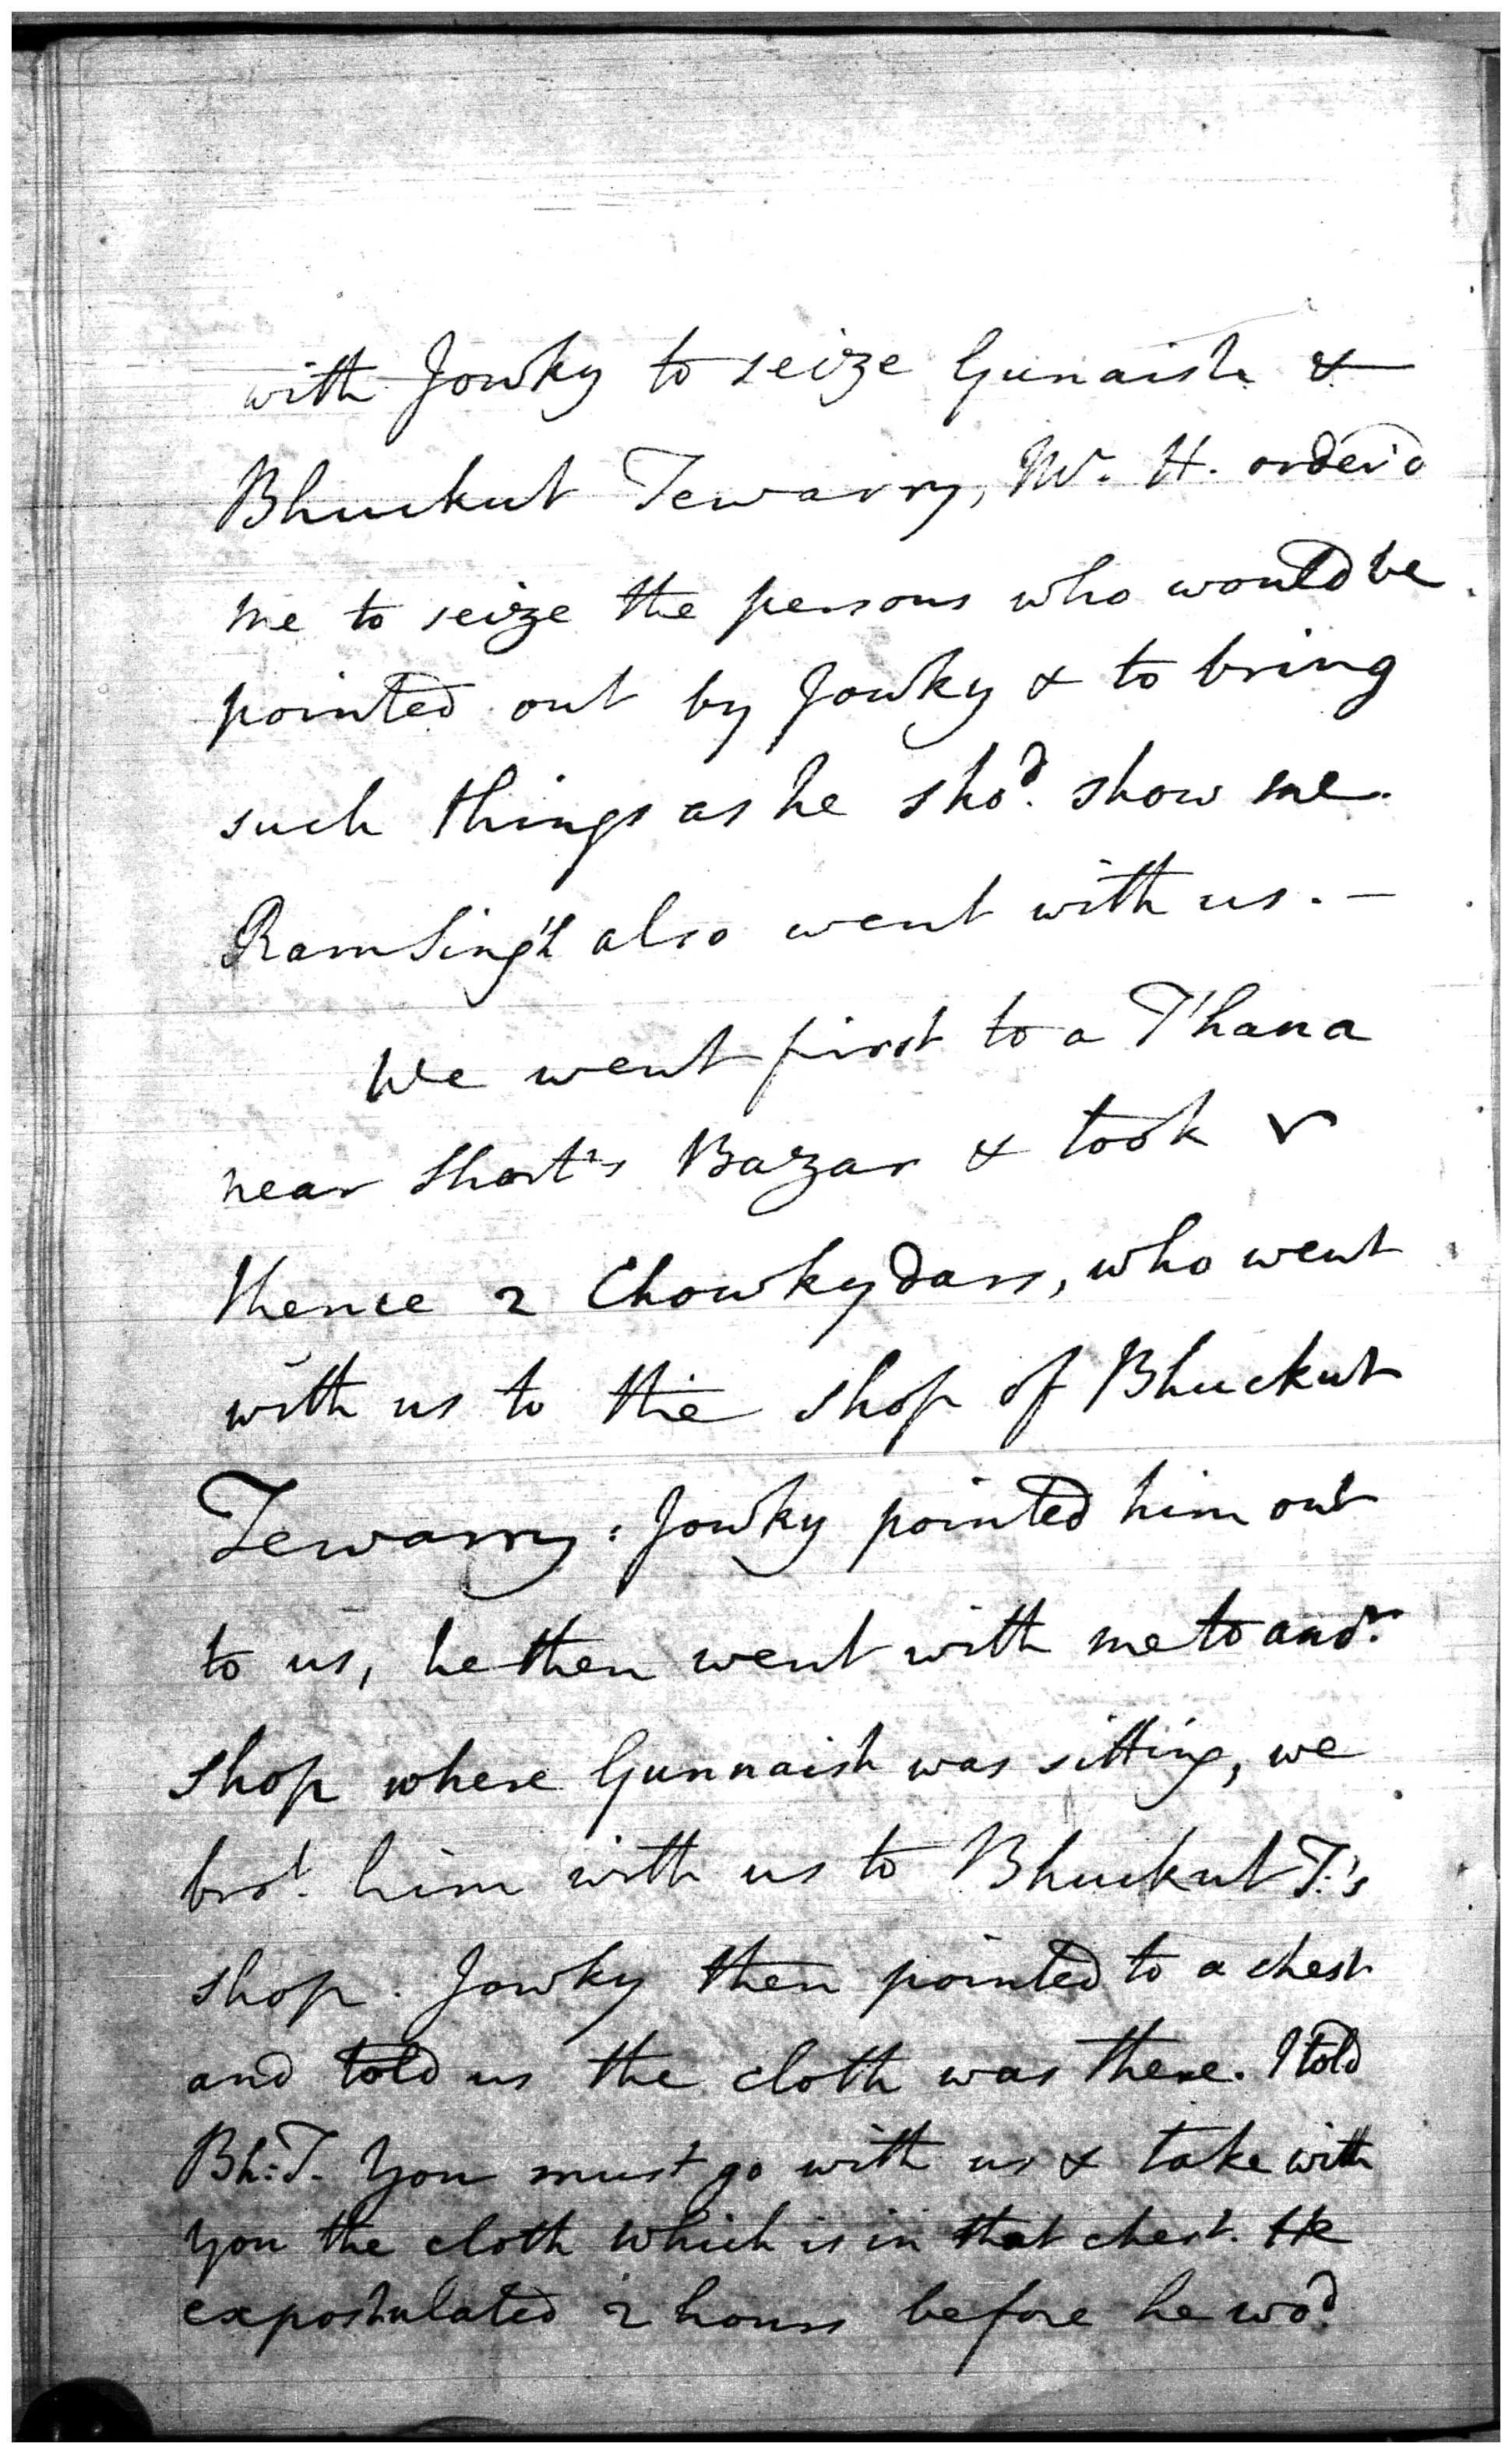 with Jowky to seize Gunaish &
Bhuckut Tewarry, Mr. H. order'd
me to seize the persons who would be
pointed out by Jowky & to bring
such things as he sho.d show me.
Ram Sing'h also went with us. —
We went first to a T'hana
near Short's Bazar & took
thence 2 Chowkydars, who went
with us to the shop of Bhuckut
Tewarry: Jowky pointed him out
to us, he then went with me to ano.r
shop where Gunnaish was sitting, we
bro.t him with us to Bhuckut T.'s
shop. Jowky then pointed to a chest
and told us the cloth was there. I told
Bh: T. you must go with us & take with
you the cloth which is in that chest. He
expostulated 2 hours before he wo.d